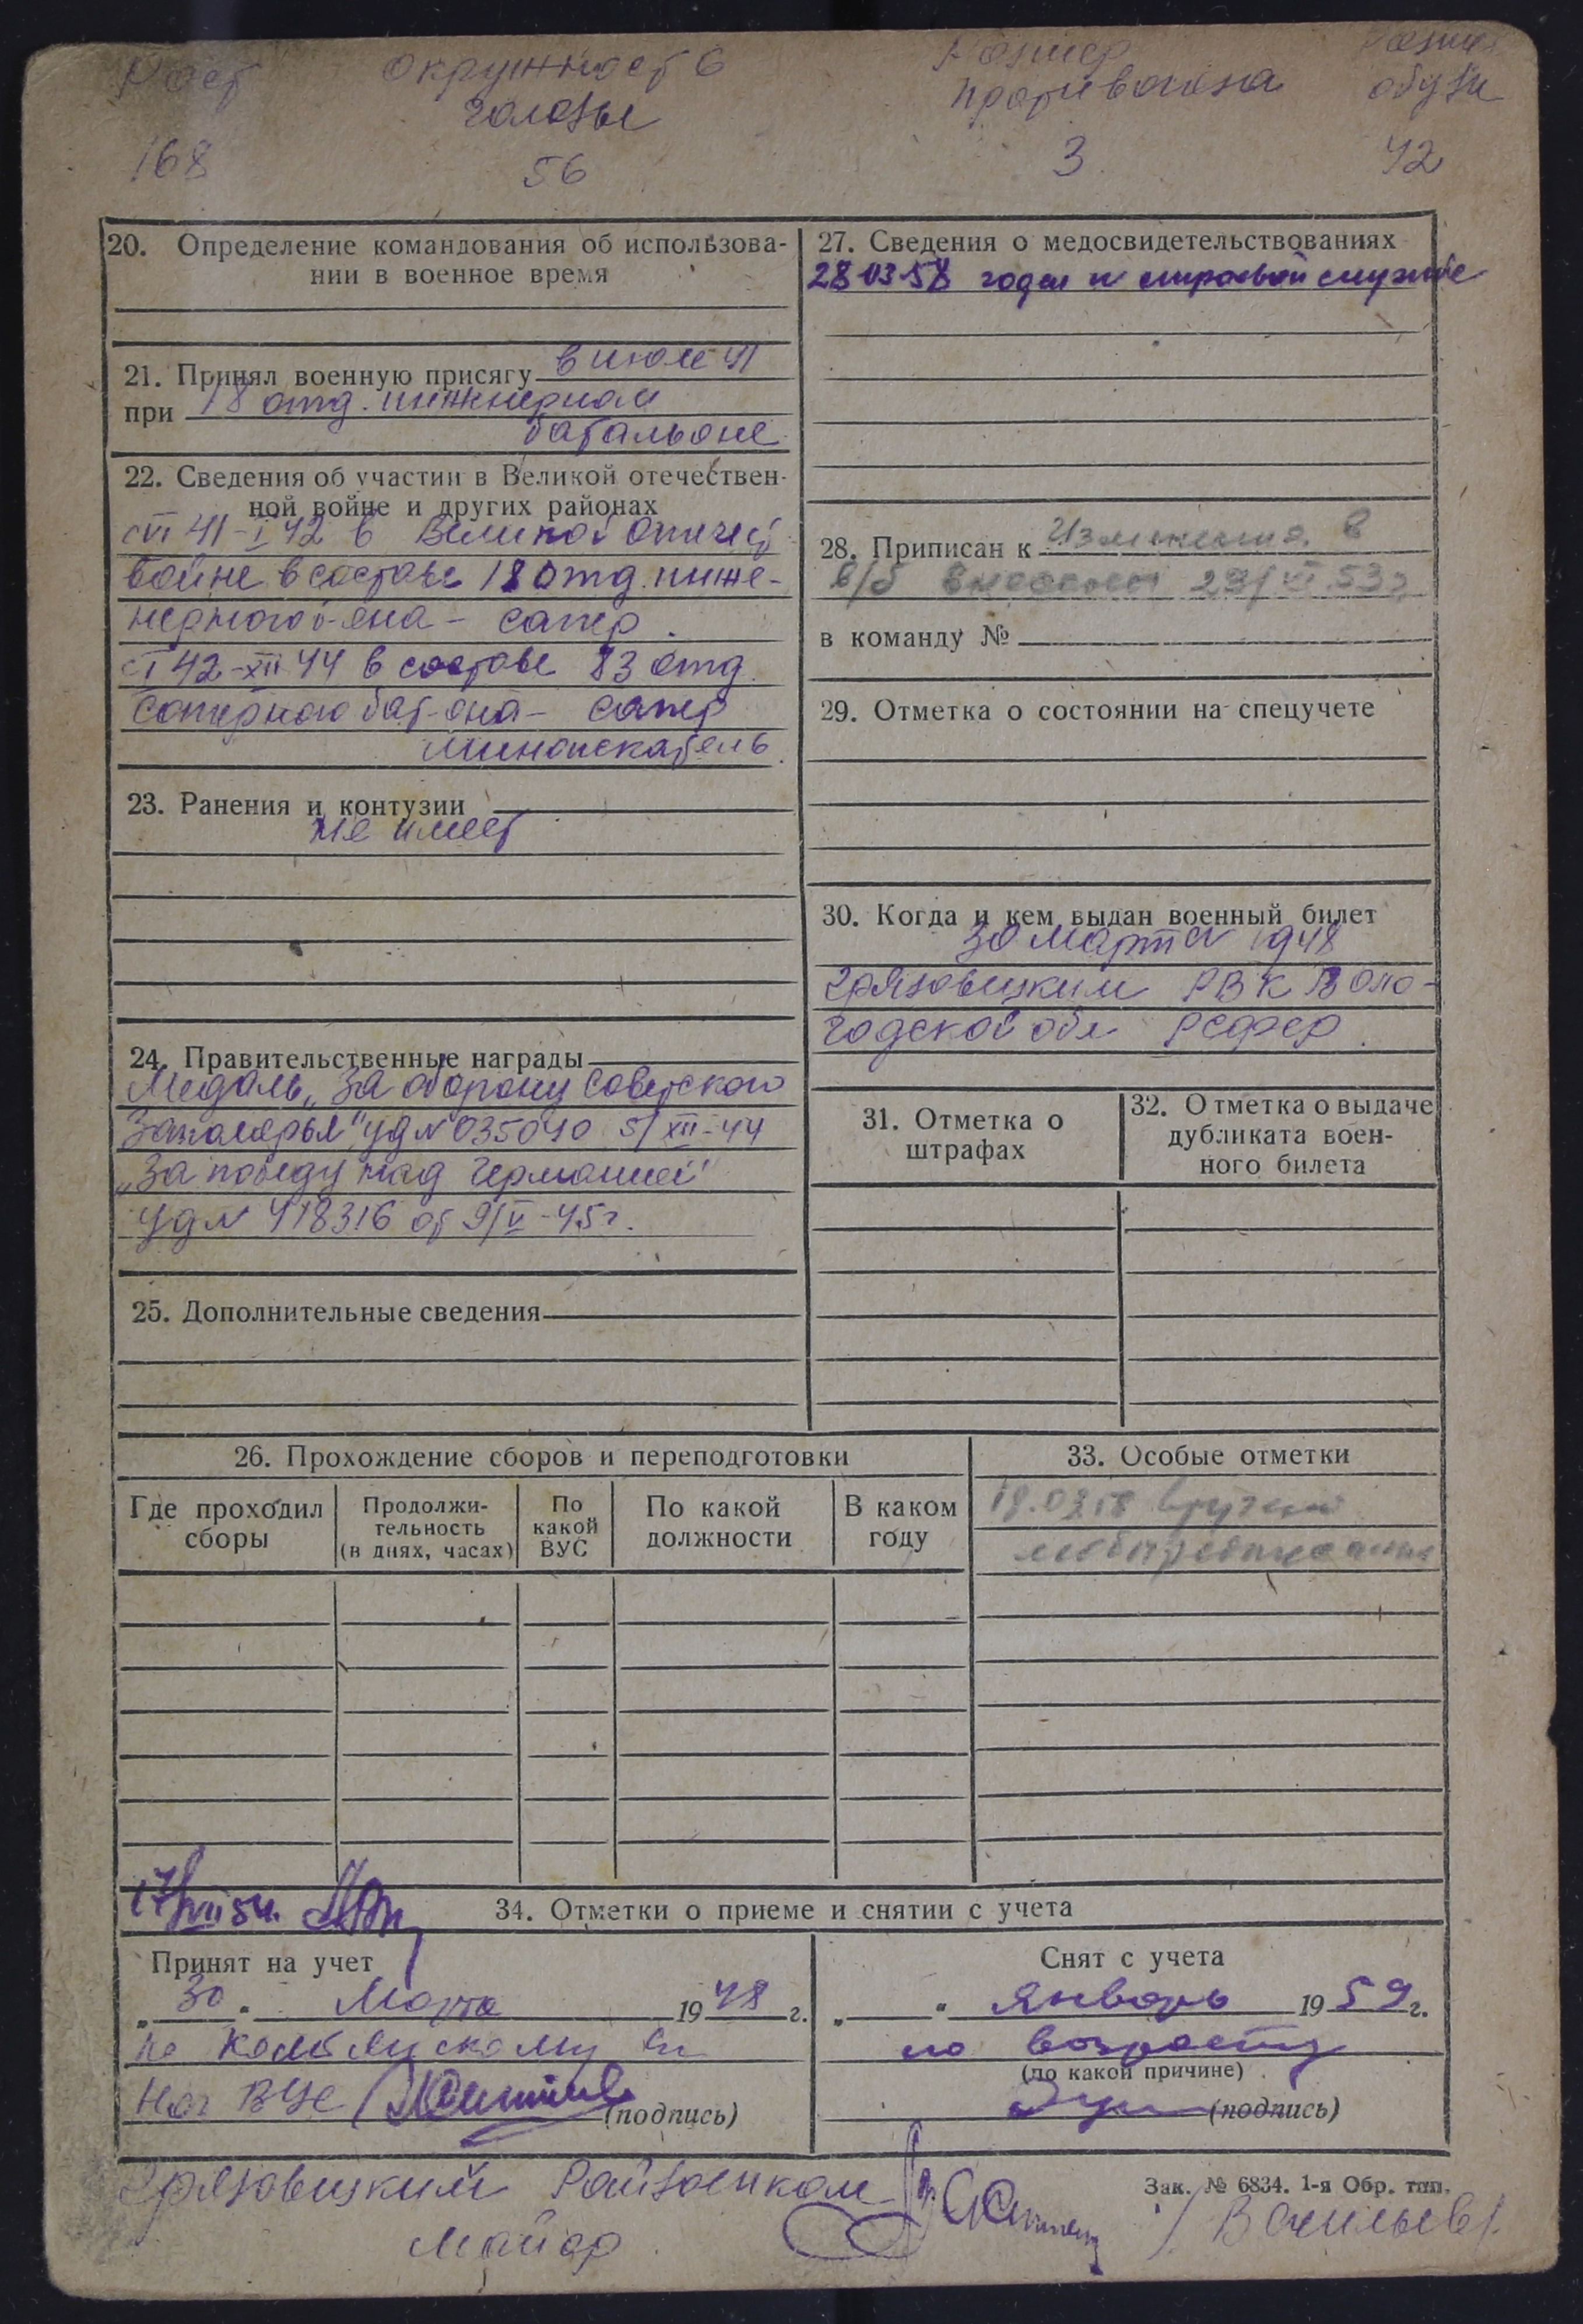 Рост Окружность Размер Размер
головы противогаза обуви
168 56 3 42
20. Определение командования об использова-
нии в военное время
21. Принял военную присягу в июле 41
при 18 отд. инженерном
батальоне
22. Сведения об участии в Великой отечествен-
ной войне и других районах
с VI 41-I 42 в Великой отечест
войне в составе 18 отд. инже-
нерного б-она - сапер.
с I 42-XII 44 в составе 83 отд.
саперного бат-она - сапер
миноискатель.
23. Ранения и контузии
не имеет
24. Правительственные награды
Медаль „За оборону Советского
Заполярья" уд N 035040 5/XII-44
„За победу над Германией"
уд N 418316 от 9/V-45 г.
25. Дополнительные сведения
27. Сведения о медосвидетельствованиях
28 03 58 годен к строевой службе
28. Приписан к Изменения в
в/б внесены 29/VI 53 г
в команду №
29. Отметка о состоянии на спецучете
30. Когда и кем выдан военный билет
30 марта 1948
Грязовецким РВК Воло-
годской обл РСФСР.
31. Отметка о
штрафах
32. Отметка о выдаче
дубликата воен-
ного билета
26. Прохождение сборов и переподготовки
Где проходил
сборы
Продолжи-
тельность
(в днях, часах)
По
какой
ВУС
По какой
должности
В каком
году
33. Особые отметки
вручено
мобпредписание
17/VII 54.
34. Отметки о приеме и снятии с учета
Принят на учет
„30" Марта 1948 г.
Нач ВУС
(подпись)
Снят с учета
„ " Январь 1959 г.
по возрасту
(по какой причине)
(подпись)
Грязовецкий Райвоенком
майор
Зак. № 6834. 1-я Обр. тип.
/Васильев/.